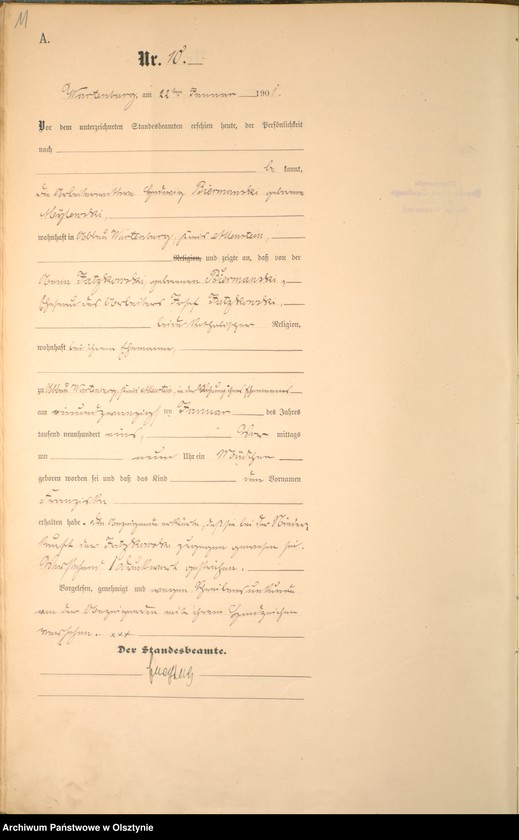 11
A.
Nr. 10.
Wartenburg, am 22ten Januar 1901.
Vor dem unterzeichneten Standesbeamten erschien heute, der Persönlichkeit
nach
be kannt,
die Arbeiterwittwe Hedwig Biermanski geborene
wohnhaft in Abbau Wartenburg, Kreis Allenstein,
Religion, und zeigte an, daß von der
Fatzkowski, geborenen Biermanski,
Ehefrau des Arbeiters Josef Fatzkowski,
beide katholischer Religion,
wohnhaft bei ihrem Ehemanne,
zu Abbau Wartenburg, Kreis Allenstein, in der Wohnung ihres Ehemannes
am einundzwanzigsten Januar des Jahres
tausend neunhundert eins, Vor mittags
um neun Uhr ein Mädchen
geboren worden sei und daß das Kind den Vornamen
Franziska
erhalten habe. Die Anzeigende erklärte, daß sie bei der Nieder
kunft der Fatzkowski zugegen gewesen sei.
Vorstehend 1 Druckwort gestrichen.
Vorgelesen, genehmigt und wegen Schreibensunkunde
von der Anzeigenden mit ihrem Handzeichen
versehen. xxx
Der Standesbeamte.
Archiwum Państwowe w Olsztynie